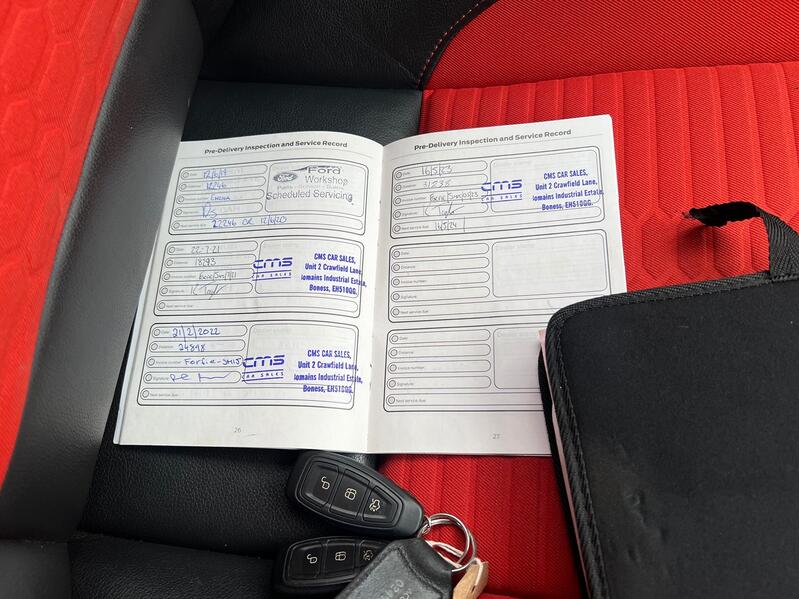 Pre-Delivery Inspection and Service Record
Date: 12/6/19
Distance: 12246
Invoice number:
Signature:
Next service due: 22246 OR 12/6/20
Ford
Workshop
Parts • Service • Sales
Scheduled Servicing
Date: 22-7-21
Distance: 18293
Invoice number:
Signature:
Next service due:
cms
CAR SALES
CMS CAR SALES,
Unit 2 Crawfield Lane,
Romains Industrial Estate,
Boness, EH510QG.
Date: 21/2/2022
Distance: 24898
Invoice number:
Signature:
Next service due:
cms
CAR SALES
CMS CAR SALES,
Unit 2 Crawfield Lane,
Romains Industrial Estate,
Boness, EH510QG.
26
Pre-Delivery Inspection and Service Record
Date: 16/5/23
Distance: 31235
Invoice number:
Signature:
Next service due: 16/5/24
cms
CAR SALES
CMS CAR SALES,
Unit 2 Crawfield Lane,
Romains Industrial Estate,
Boness, EH510QG.
Date:
Distance:
Invoice number:
Signature:
Next service due:
Date:
Distance:
Invoice number:
Signature:
Next service due:
27